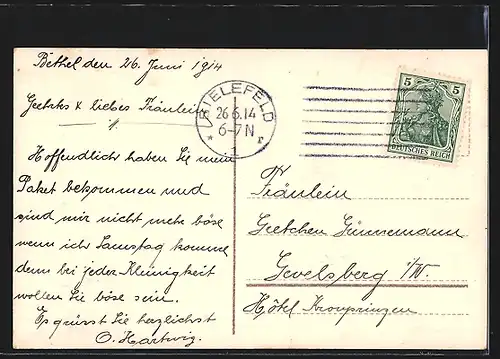 Bethel den 26. Juni 1914
Geehrtes & liebes Fräulein
Hoffendlich haben Sie mein
Paket bekommen und
sind mir nicht mehr böse
wenn ich Samstag komme
denn bei jeder Kleinigkeit
wollen Sie böse sein.
Es grüsst Sie herzlichst
O. Hartwig.
BIELEFELD
26.6.14
6-7N
* 1 r
5 5
DEUTSCHES REICH
Fräulein
Gretchen Günnemann
Gevelsberg i/W.
Hôtel Kronprinzen